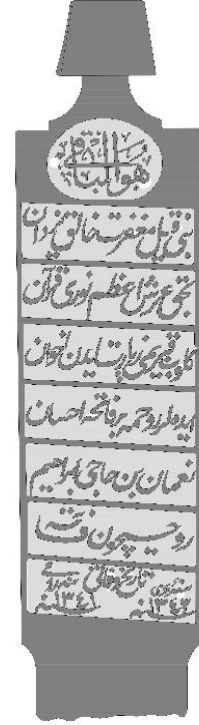 هو الباقي
بني قيل مغفرت خالق يزدان
بحق عرش اعظم نوري قرآن
كلوب قبريمي زيارت ايدن اخوان
ايده لر روحمه بر فاتحه احسان
نعمان بن حاجي ابراهيم
روحيچون فاتحه
تاريخ وفاتي
سنه ١٣٤٢ سنه ١٣٤١